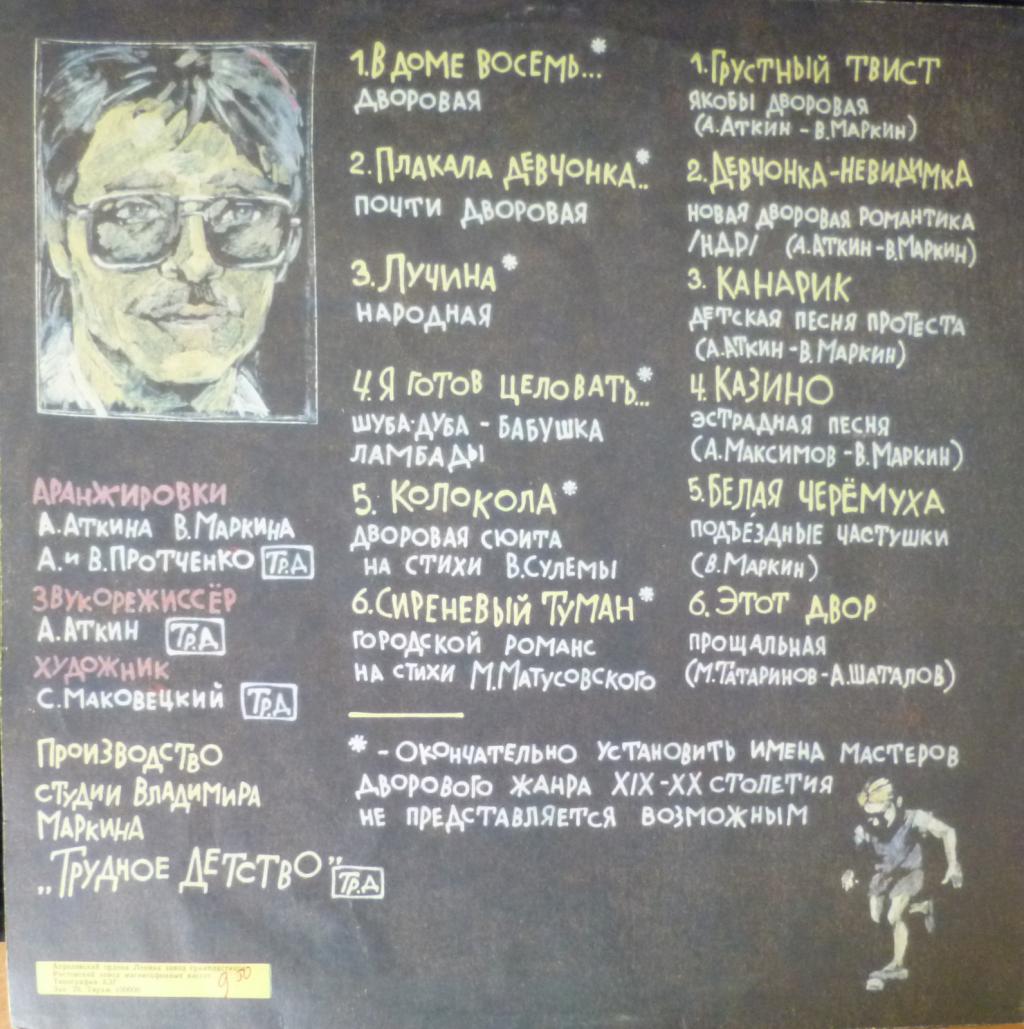 1. В ДОМЕ ВОСЕМЬ...*
ДВОРОВАЯ
2. ПЛАКАЛА ДЕВЧОНКА..*
ПОЧТИ ДВОРОВАЯ
3. ЛУЧИНА*
НАРОДНАЯ
4. Я ГОТОВ ЦЕЛОВАТЬ...*
ШУБА-ДУБА - БАБУШКА
ЛАМБАДЫ
5. КОЛОКОЛА*
ДВОРОВАЯ СЮИТА
НА СТИХИ В.СУЛЕМЫ
6. СИРЕНЕВЫЙ ТУМАН*
ГОРОДСКОЙ РОМАНС
НА СТИХИ М.МАТУСОВСКОГО
1. ГРУСТНЫЙ ТВИСТ
ЯКОБЫ ДВОРОВАЯ
(А.АТКИН - В.МАРКИН)
2. ДЕВЧОНКА-НЕВИДИМКА
НОВАЯ ДВОРОВАЯ РОМАНТИКА
/НДР/ (А.АТКИН - В.МАРКИН)
3. КАНАРИК
ДЕТСКАЯ ПЕСНЯ ПРОТЕСТА
(А.АТКИН - В.МАРКИН)
4. КАЗИНО
ЭСТРАДНАЯ ПЕСНЯ
(А.МАКСИМОВ - В.МАРКИН)
5. БЕЛАЯ ЧЕРЁМУХА
ПОДЪЕЗДНЫЕ ЧАСТУШКИ
(В.МАРКИН)
6. ЭТОТ ДВОР
ПРОЩАЛЬНАЯ
(М.ТАТАРИНОВ - А.ШАТАЛОВ)
АРАНЖИРОВКИ
А.АТКИНА В.МАРКИНА
А. И В.ПРОТЧЕНКО ТР.Д
ЗВУКОРЕЖИССЁР
А.АТКИН ТР.Д
ХУДОЖНИК
С.МАКОВЕЦКИЙ ТР.Д
ПРОИЗВОДСТВО
СТУДИИ ВЛАДИМИРА
МАРКИНА
„ТРУДНОЕ ДЕТСТВО" ТР.Д
* - ОКОНЧАТЕЛЬНО УСТАНОВИТЬ ИМЕНА МАСТЕРОВ
ДВОРОВОГО ЖАНРА XIX-XX СТОЛЕТИЯ
НЕ ПРЕДСТАВЛЯЕТСЯ ВОЗМОЖНЫМ
Апрелевский ордена Ленина завод грампластинок
завод магнитофонных кассет
Типография
Тираж